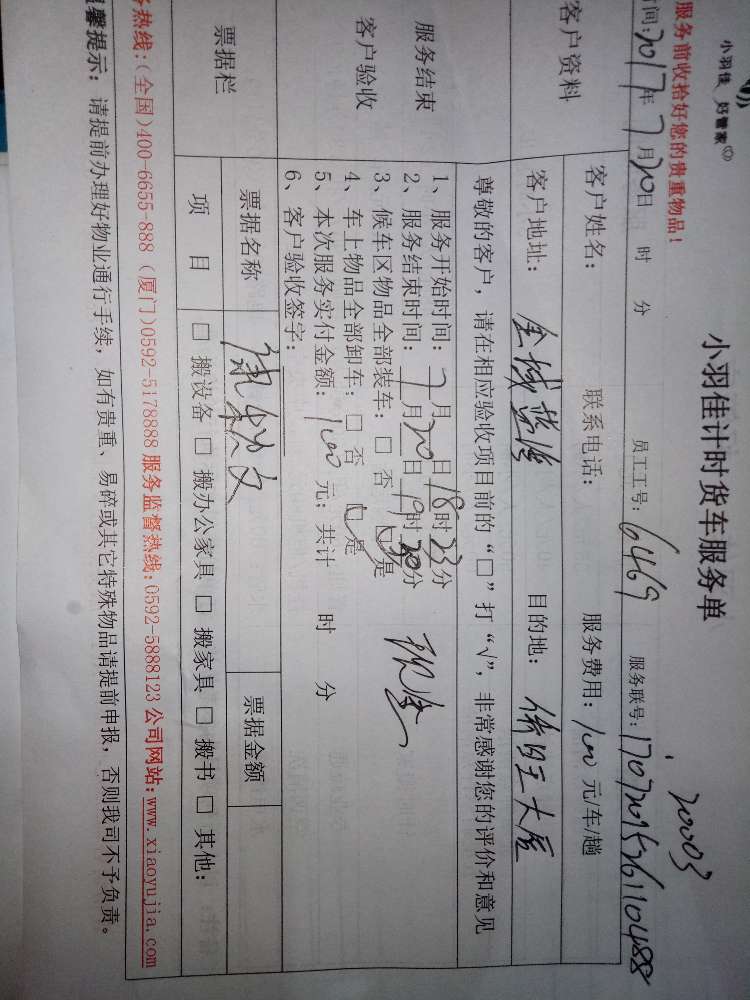 小羽佳 好管家
服务前收拾好您的贵重物品！
小羽佳计时货车服务单
20003
间：2017年7月20日 时 分 员工工号：6469 服务联号：
客户资料
客户姓名： 联系电话： 服务费用：100元/车/趟
客户地址：金域蓝湾 目的地：
服务结束
客户验收
尊敬的客户，请在相应验收项目前的“□”打“√”，非常感谢您的评价和意见
1、服务开始时间：7月20日18时23分
2、服务结束时间：7月20日19时20分
3、候车区物品全部装车：□ 否 □ 是
4、车上物品全部卸车：□ 否 □ 是
5、本次服务实付金额：100元；共计 时 分
6、客户验收签字：
票据栏
票据名称 票据金额
项 目 □ 搬设备 □ 搬办公家具 □ 搬家具 □ 搬书 □ 其他：
务热线：（全国）400-6655-888（厦门）0592-5178888 服务监督热线：0592-5888123 公司网站：www.xiaoyujia.com
温馨提示：请提前办理好物业通行手续，如有贵重、易碎或其它特殊物品请提前申报，否则我司不予负责。